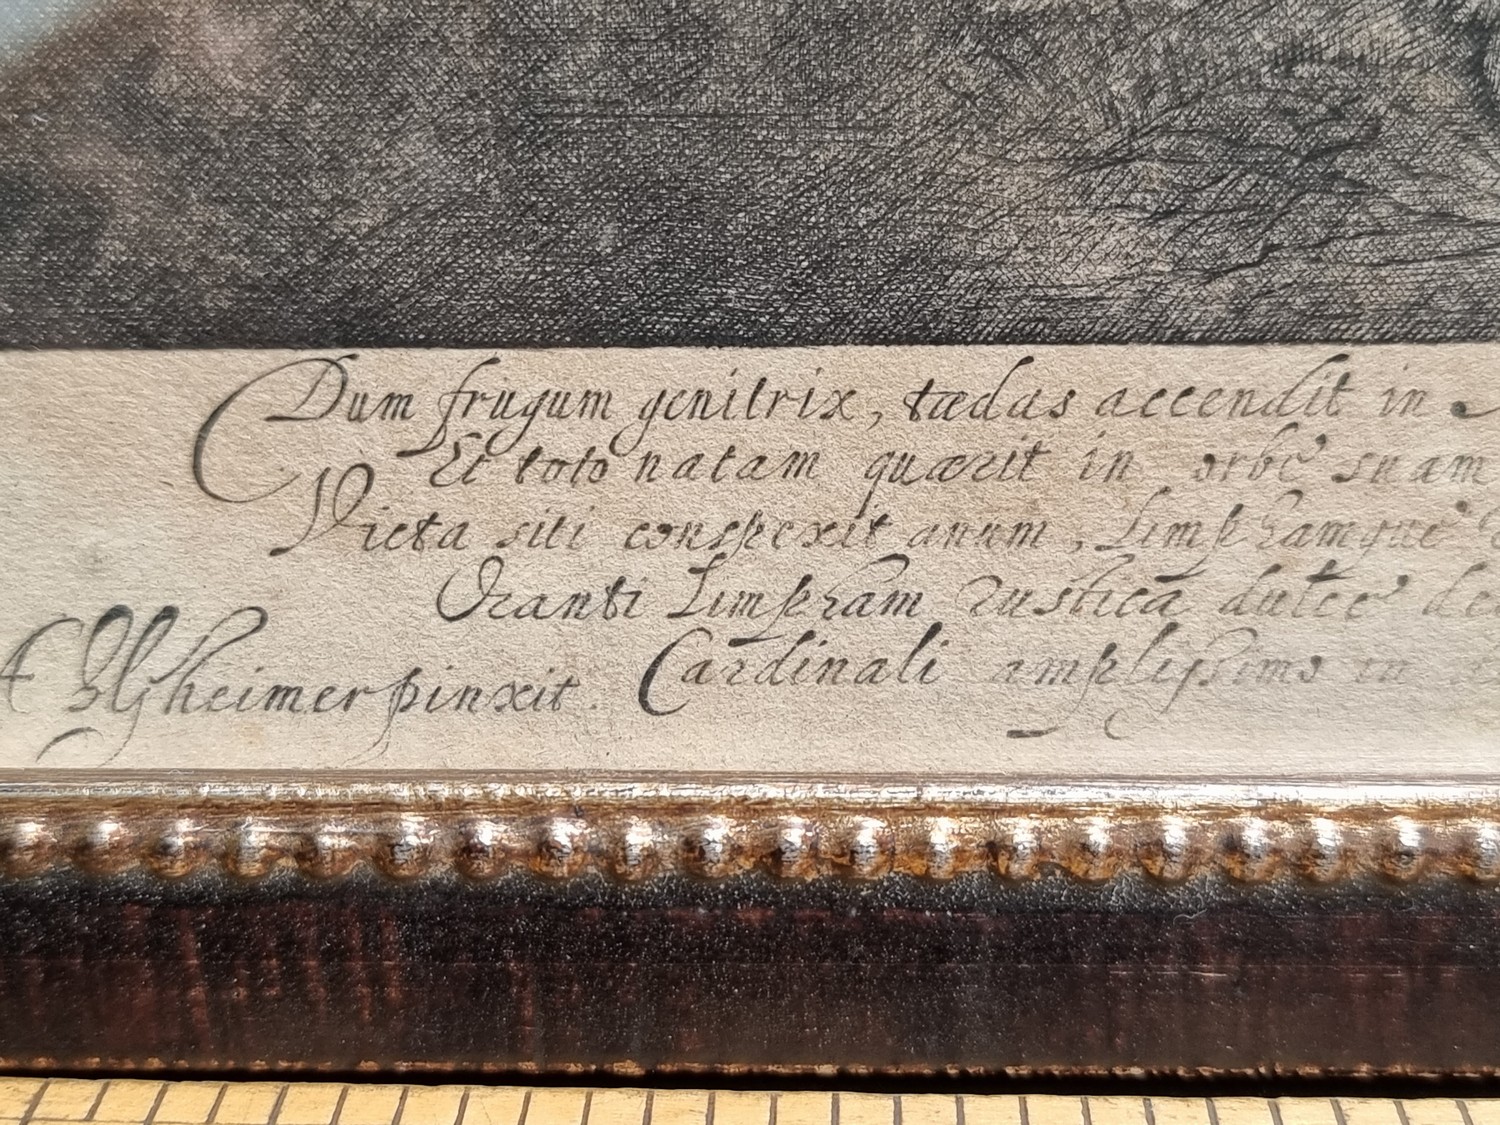 Dum frugum genitrix, tædas accendit in
Et toto natam quærit in orbe suam
Victa siti conspexit anum, Limphamque
Oranti Limpham rustica dulce
AElsheimer pinxit. Cardinali amplissimo in